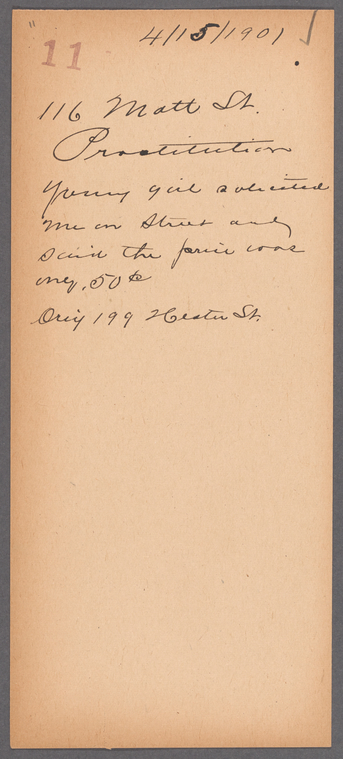 "
11
4/15/1901
116 Mott St.
Prostitution
Young girl solicited
me on street and
said the price was
only .50¢
Orig 199 Hester St.